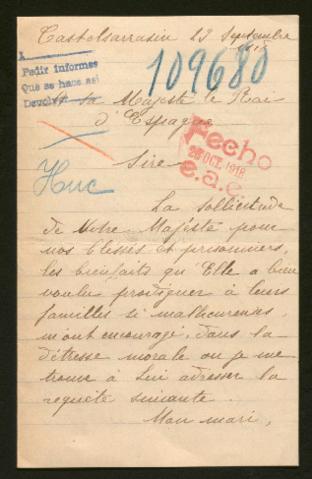 Castelsarrasin 23 Septembre
1918
Pedir informes
Que se hace así
109680
A sa Majesté le Roi
d'Espagne
Fecho
26 OCT. 1918
e.a.c.
Sire
Huc
La sollicitude
de Votre Majesté pour
nos blessés et prisonniers,
les bienfaits qu'Elle a bien
voulu prodiguer à leurs
familles si malheureuses,
m'ont encouragé, dans la
détresse morale ou je me
trouve à Lui adresser la
requête suivante.
Mon mari,